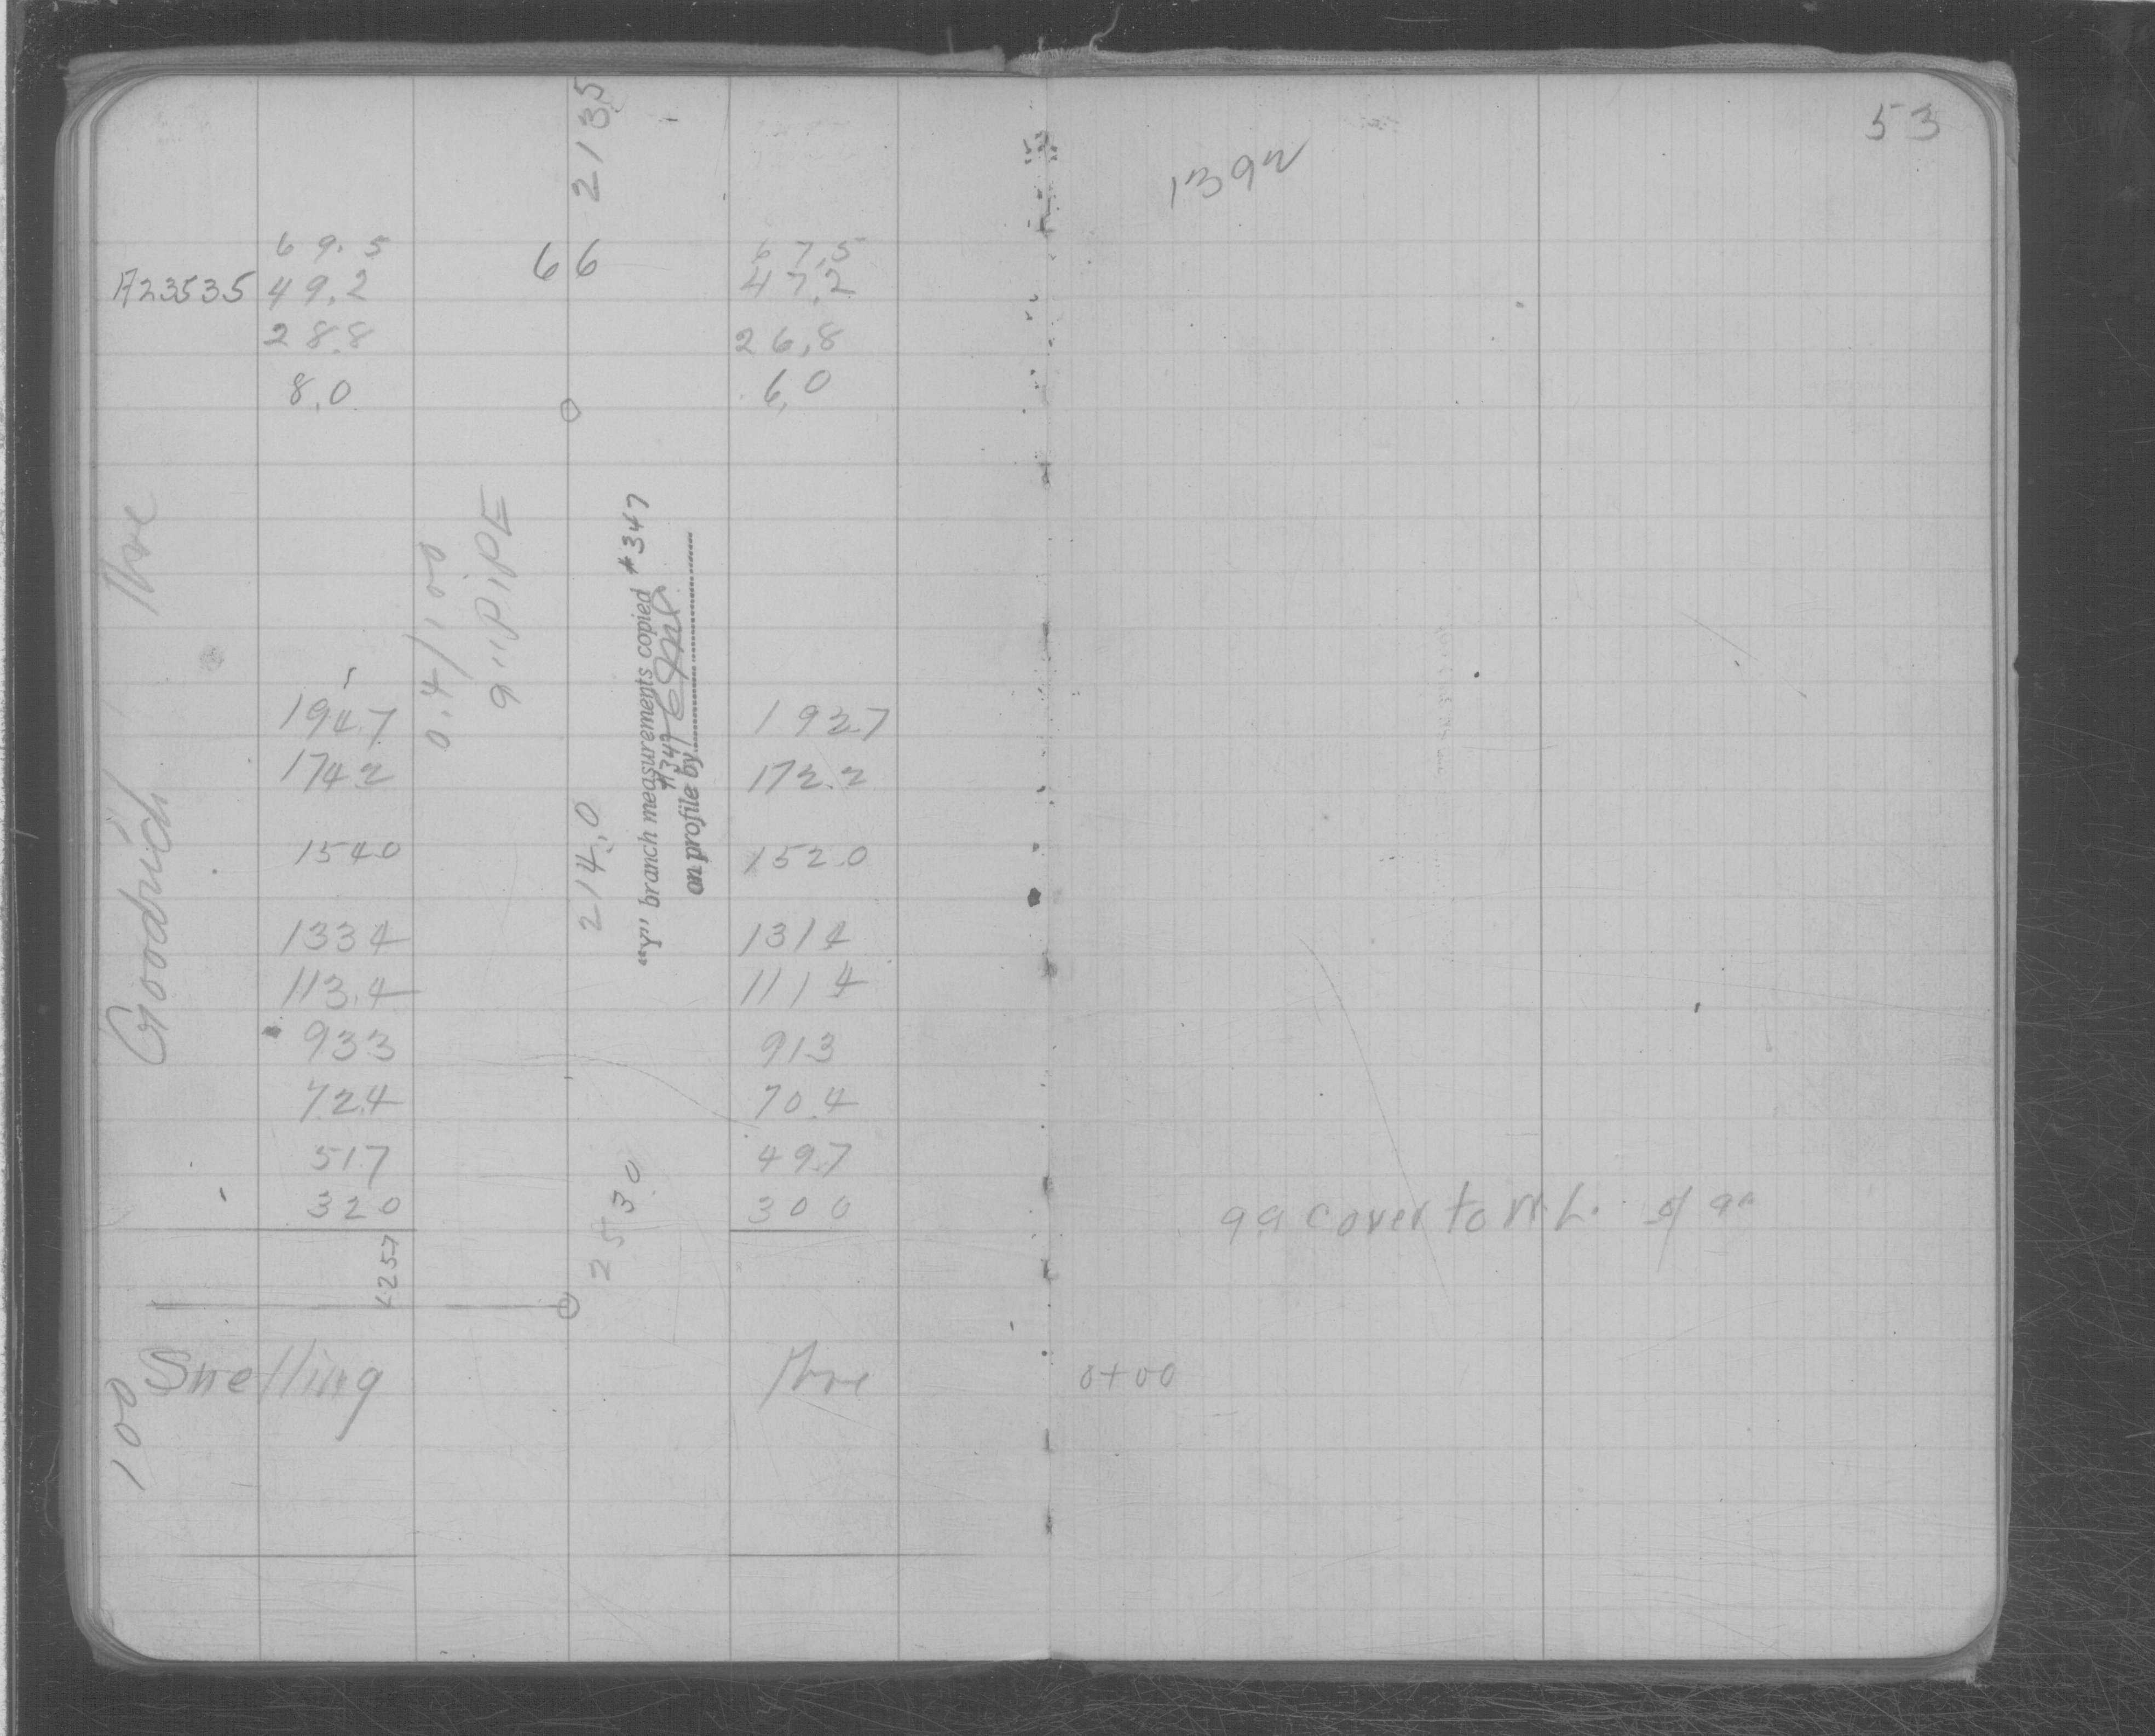 53
139
2135
69.5 66 67,5
A23535 49,2 47,2
28.8 26,8
8,0 6,0
Goodrich Ave
0.4/100
9" PIPE
"Y" branch measurements copied #347
#347
on profile by
214,0
194.7 192.7
174.2 172.2
154.0 152.0
133.4 131.4
113.4 111.4
93.3 91.3
72.4 70.4
51.7 49.7
32.0 30.0
253.0
257
Snelling Ave 0+00
100
9.9 cover to W. L. of 9"